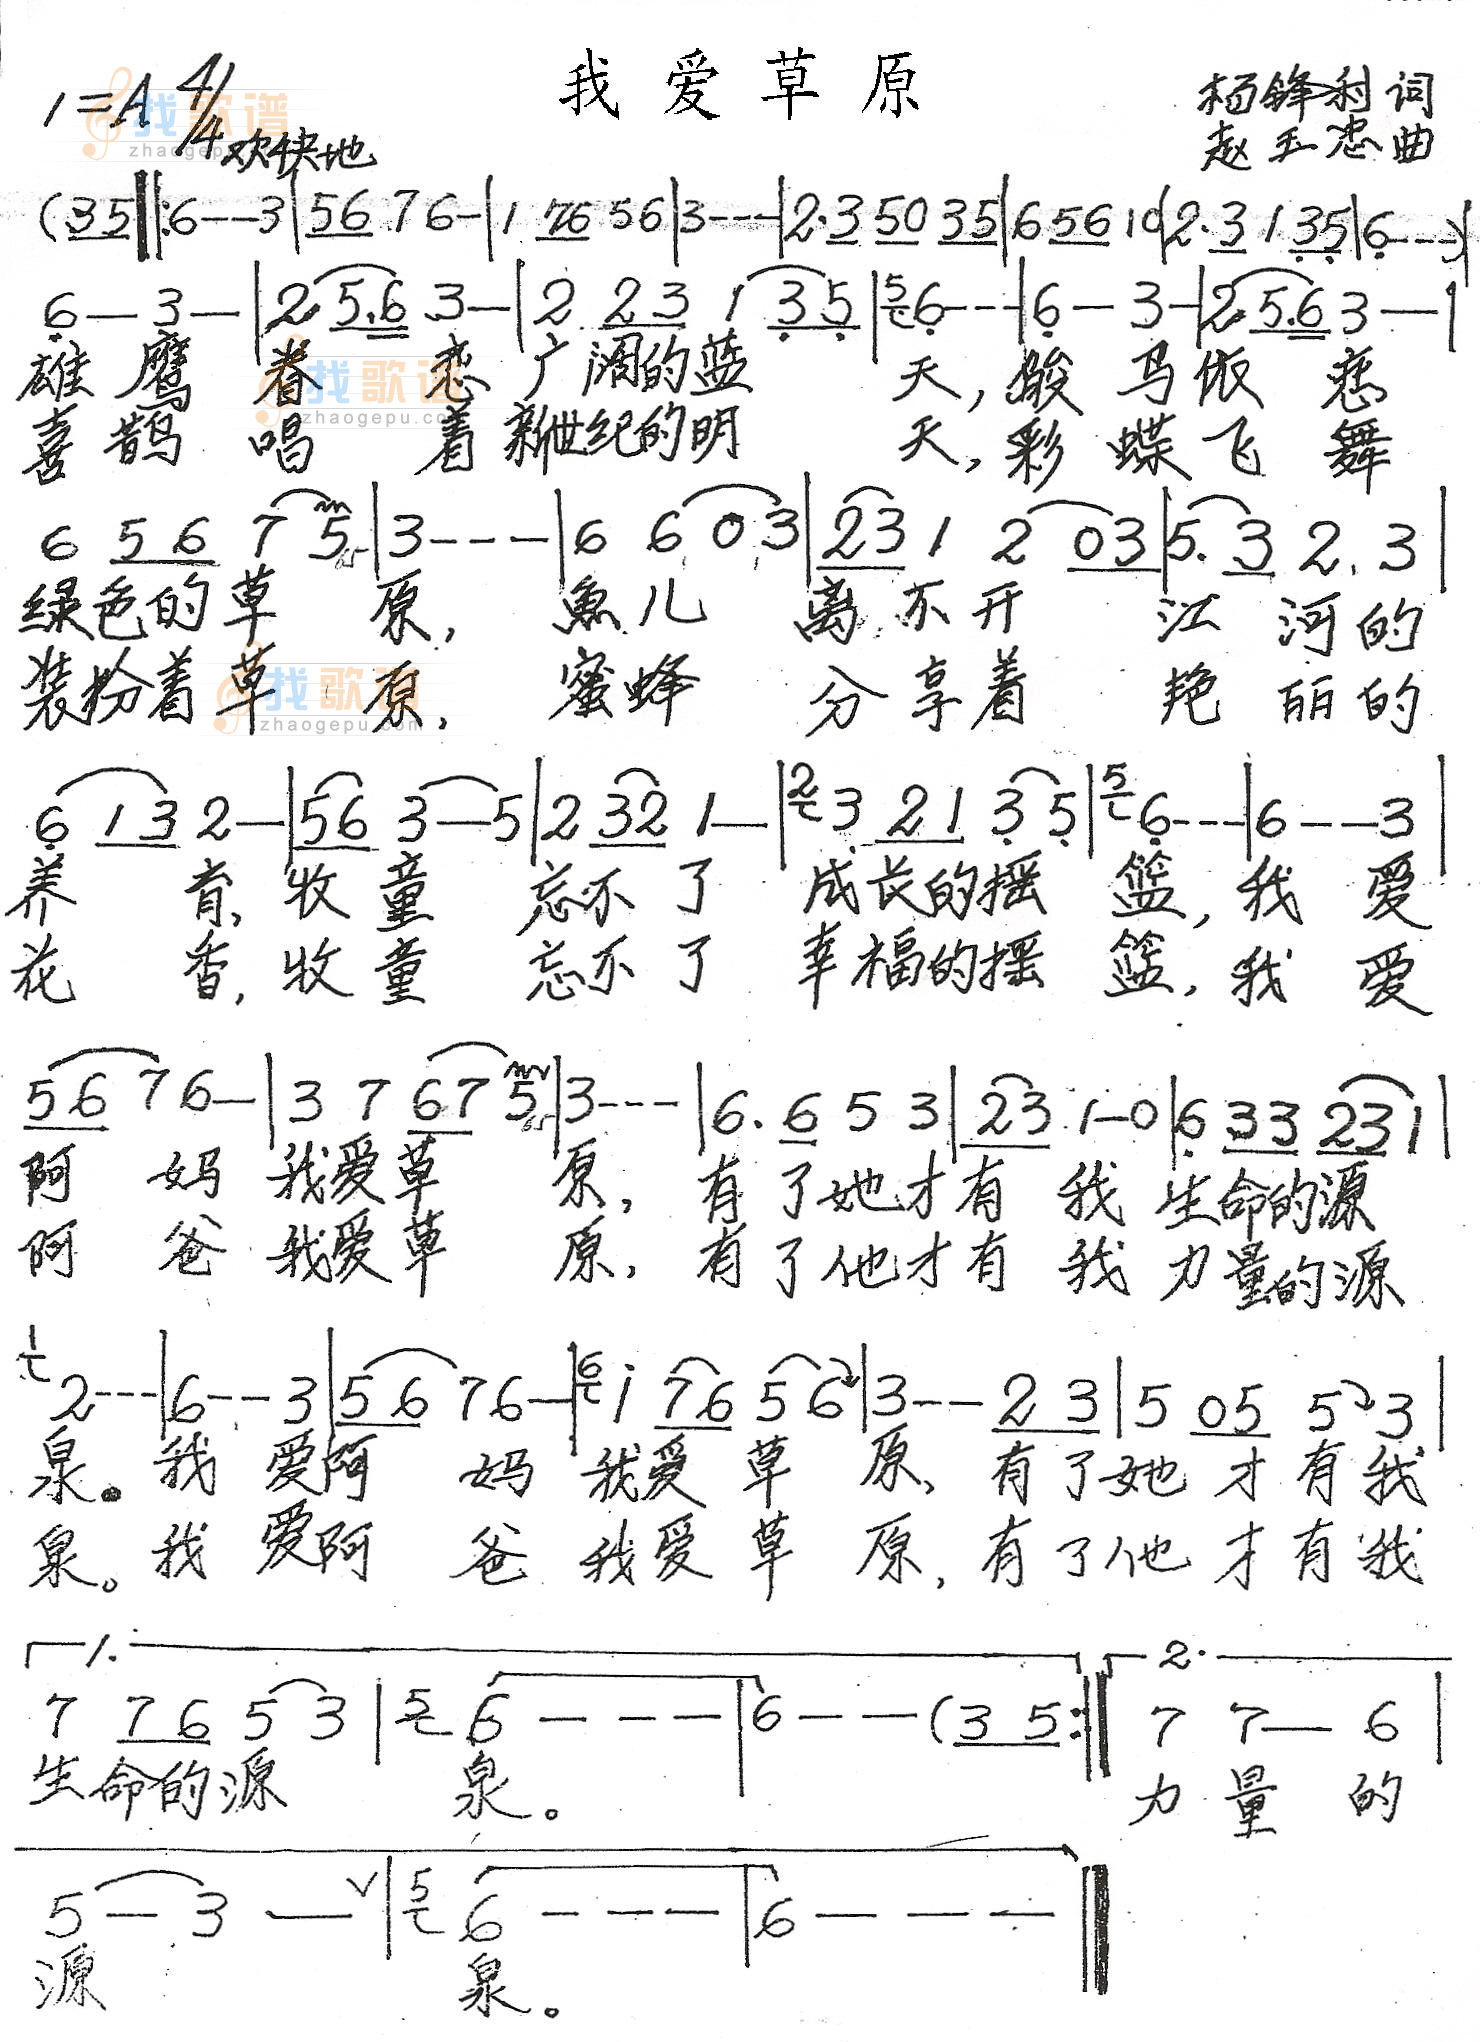 我爱草原
1=A 4/4 欢快地
杨锋利 词
赵玉忠 曲
找歌谱
zhaogepu.com
(35‖:6--3|56 76-|1 76 56|3---|2.3 50 35|6 56 10|2.3 1 35|6---)|
6-3-|2 5.6 3-|2 23 1 35|5 6---|6-3-|2 5.6 3-|
雄鹰眷恋广阔的蓝天,骏马依恋
喜鹊唱着新世纪的明天,彩蝶飞舞
找歌谱
zhaogepu.com
6 56 7 5|3---|6 6 0 3|23 1 2 03|5. 3 2. 3|
绿色的草原,鱼儿离不开江河的
装扮着草原,蜜蜂分享着艳丽的
找歌谱
zhaogepu.com
6 13 2-|56 3-5|2 32 1-|2 3 21 3 5|5 6---|6--3|
养育,牧童忘不了成长的摇篮,我爱
花香,牧童忘不了幸福的摇篮,我爱
56 76-|3 7 67 5|3---|6. 6 5 3|23 1-0|6 33 23 1|
阿妈我爱草原,有了她才有我生命的源
阿爸我爱草原,有了他才有我力量的源
1 2---|6--3|56 76-|6 i 76 5 6|3--2 3|5 05 5 3|
泉。我爱阿妈我爱草原,有了她才有我
泉。我爱阿爸我爱草原,有了他才有我
1. 2.
7 76 5 3|5 6---|6--(3 5:‖7 7-6|
生命的源泉。力量的
5-3-∨|5 6---|6---‖
源泉。